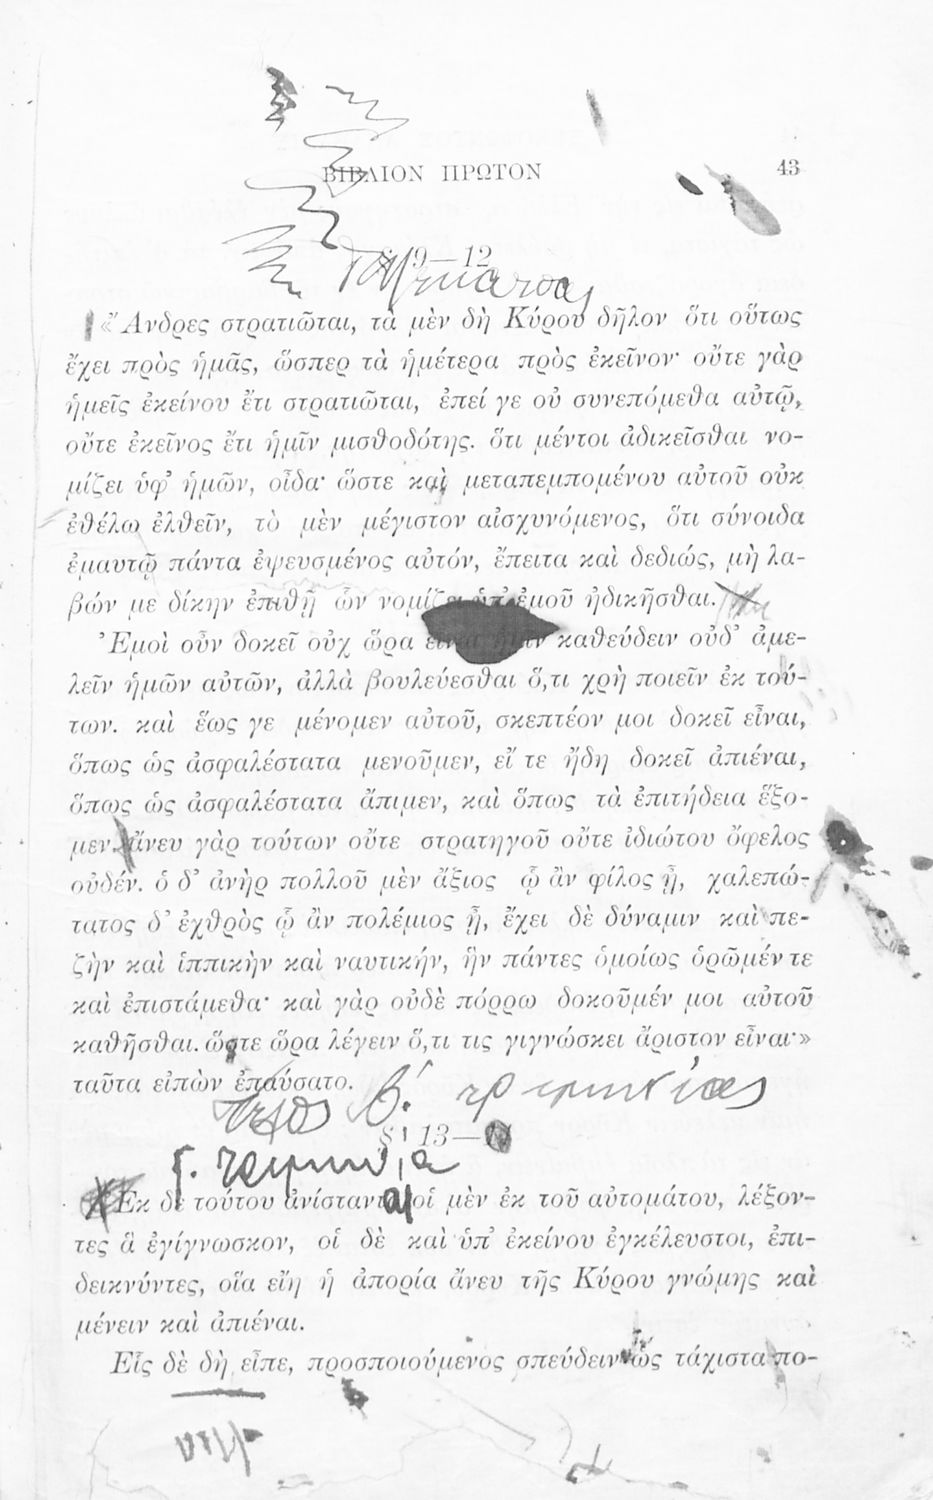 ΒΙΒΛΙΟΝ ΠΡΩΤΟΝ 43
§ 9—12
«Ἄνδρες στρατιῶται, τὰ μὲν δὴ Κύρου δῆλον ὅτι οὕτως
ἔχει πρὸς ἡμᾶς, ὥσπερ τὰ ἡμέτερα πρὸς ἐκεῖνον· οὔτε γὰρ
ἡμεῖς ἐκείνου ἔτι στρατιῶται, ἐπεί γε οὐ συνεπόμεθα αὐτῷ,
οὔτε ἐκεῖνος ἔτι ἡμῖν μισθοδότης. ὅτι μέντοι ἀδικεῖσθαι νο-
μίζει ὑφ' ἡμῶν, οἶδα· ὥστε καὶ μεταπεμπομένου αὐτοῦ οὐκ
ἐθέλω ἐλθεῖν, τὸ μὲν μέγιστον αἰσχυνόμενος, ὅτι σύνοιδα
ἐμαυτῷ πάντα ἐψευσμένος αὐτόν, ἔπειτα καὶ δεδιώς, μὴ λα-
βών με δίκην ἐπιθῇ ὧν νομίζει ὑπ' ἐμοῦ ἠδικῆσθαι.
Ἐμοὶ οὖν δοκεῖ οὐχ ὥρα καθεύδειν οὐδ' ἀμε-
λεῖν ἡμῶν αὐτῶν, ἀλλὰ βουλεύεσθαι ὅ,τι χρὴ ποιεῖν ἐκ τού-
των. καὶ ἕως γε μένομεν αὐτοῦ, σκεπτέον μοι δοκεῖ εἶναι,
ὅπως ὡς ἀσφαλέστατα μενοῦμεν, εἴ τε ἤδη δοκεῖ ἀπιέναι,
ὅπως ὡς ἀσφαλέστατα ἄπιμεν, καὶ ὅπως τὰ ἐπιτήδεια ἕξο-
μεν. ἄνευ γὰρ τούτων οὔτε στρατηγοῦ οὔτε ἰδιώτου ὄφελος
οὐδέν. ὁ δ' ἀνὴρ πολλοῦ μὲν ἄξιος ᾧ ἂν φίλος ᾖ, χαλεπώ-
τατος δ' ἐχθρὸς ᾧ ἂν πολέμιος ᾖ, ἔχει δὲ δύναμιν καὶ πε-
ζὴν καὶ ἱππικὴν καὶ ναυτικήν, ἣν πάντες ὁμοίως ὁρῶμέν τε
καὶ ἐπιστάμεθα· καὶ γὰρ οὐδὲ πόρρω δοκοῦμέν μοι αὐτοῦ
καθῆσθαι. ὥστε ὥρα λέγειν ὅ,τι τις γιγνώσκει ἄριστον εἶναι·»
ταῦτα εἰπὼν ἐπαύσατο.
§ 13—
Ἐκ δὲ τούτου ἀνίσταντο οἱ μὲν ἐκ τοῦ αὐτομάτου, λέξον-
τες ἃ ἐγίγνωσκον, οἱ δὲ καὶ ὑπ' ἐκείνου ἐγκέλευστοι, ἐπι-
δεικνύντες, οἵα εἴη ἡ ἀπορία ἄνευ τῆς Κύρου γνώμης καὶ
μένειν καὶ ἀπιέναι.
Εἷς δὲ δὴ εἶπε, προσποιούμενος σπεύδειν ὡς τάχιστα πο-